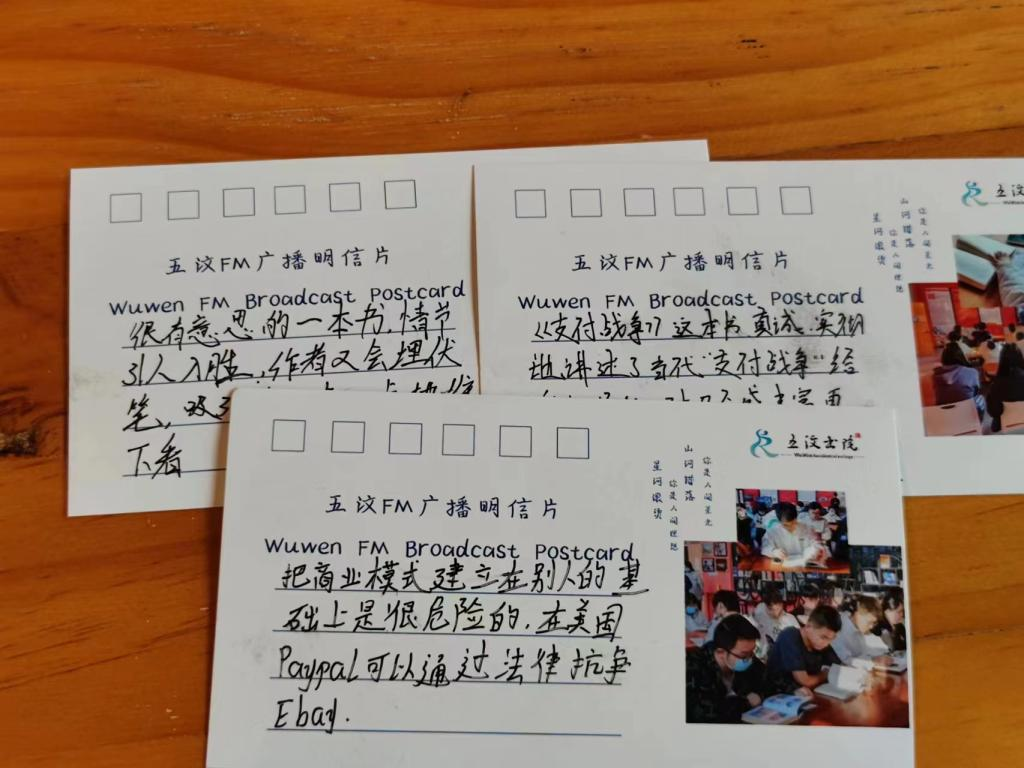 五汶FM广播明信片
Wuwen FM Broadcast Postcard
很有意思的一本书,情节
引人入胜,作者又会埋伏
笔,吸
下看
五汶
山河踏落
星河滚烫
你是人间星光
你是人间理想
五汶FM广播明信片
Wuwen FM Broadcast Postcard
《支付战争》这本书真诚、实彻
地讲述了当代“支付战争”经
五汶书院
山河踏落
星河滚烫
你是人间星光
你是人间理想
五汶FM广播明信片
Wuwen FM Broadcast Postcard
把商业模式建立在别人的基
础上是很危险的,在美国
Paypal可以通过法律抗争
Ebay.